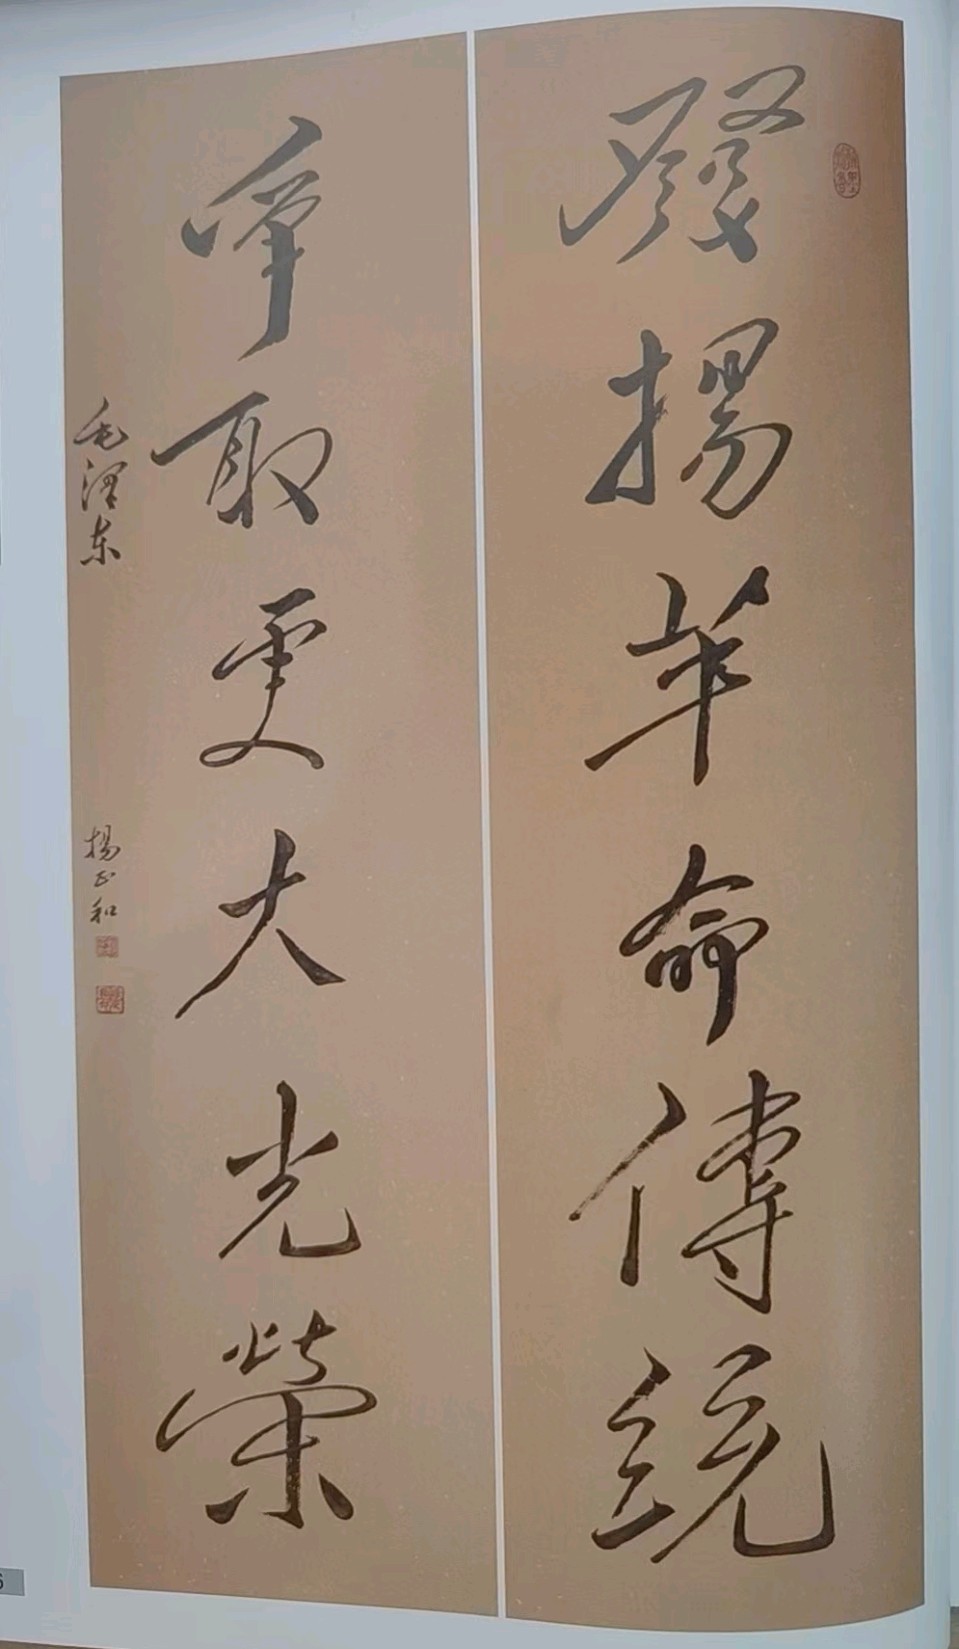 發揚革命傳統
爭取更大光榮
毛澤东
楊正和